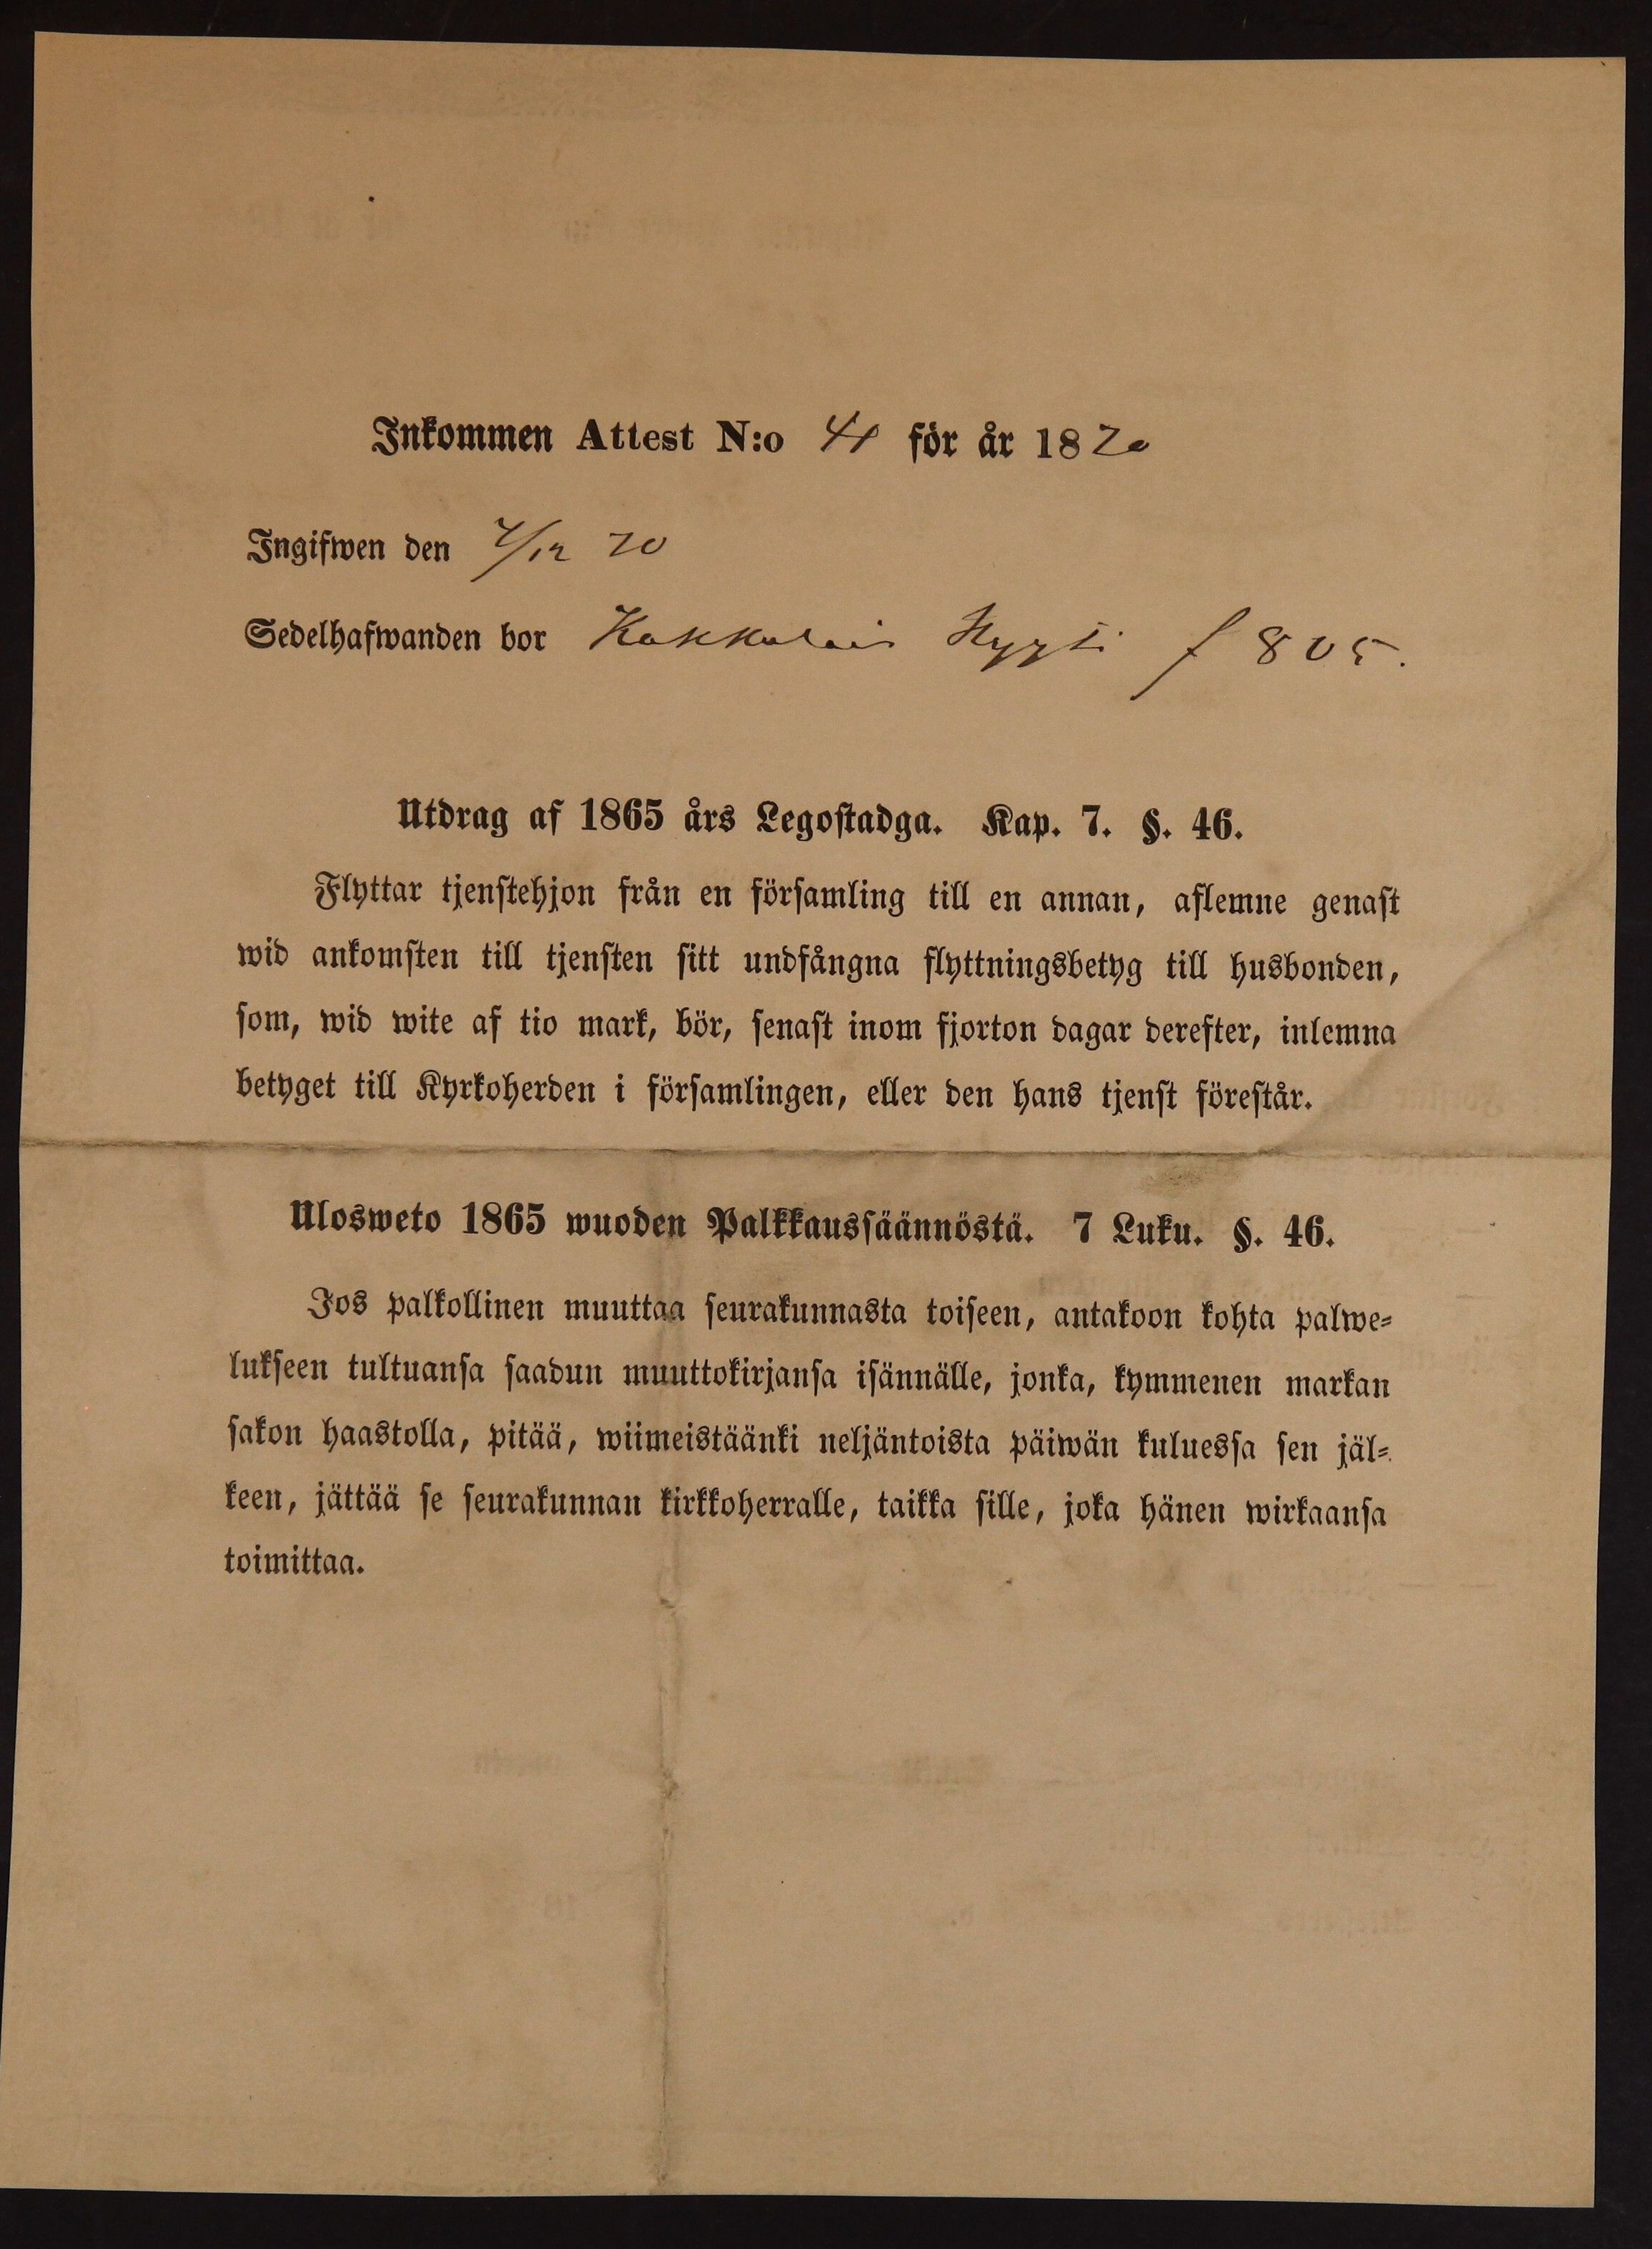 Inkommen Attest N:o 41 för år 1870
Ingifwen den 7/12 70
Sedelhafwanden bor Kakkolais Hyyti f 805.
Utdrag af 1865 års Legostadga. Kap. 7. §. 46.
Flyttar tjenstehjon från en församling till en annan, aflemne genast
wid ankomsten till tjensten sitt undfångna flyttningsbetyg till husbonden,
som, wid wite af tio mark, bör, senast inom fjorton dagar derefter, inlemna
betyget till Kyrkoherden i församlingen, eller den hans tjenst förestår.
Ulosweto 1865 wuoden Palkkaussäännöstä. 7 Luku. §. 46.
Jos palkollinen muuttaa seurakunnasta toiseen, antakoon kohta palwe-
lukseen tultuansa saadun muuttokirjansa isännälle, jonka, kymmenen markan
sakon haastolla, pitää, wiimeistäänki neljäntoista päiwän kuluessa sen jäl-
keen, jättää se seurakunnan kirkkoherralle, taikka sille, joka hänen wirkaansa
toimittaa.